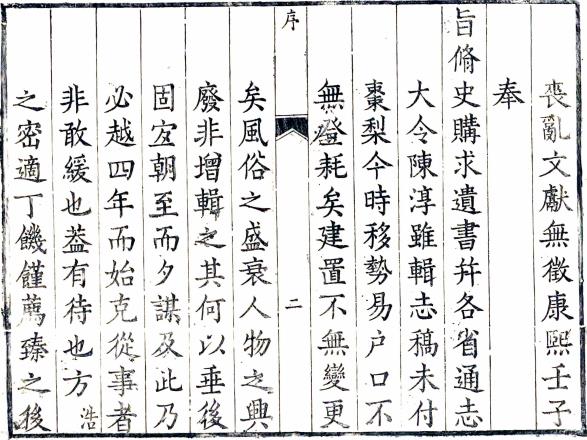 喪亂文獻無徵康熙壬子
奉
旨脩史購求遺書幷各省通志
大令陳淳雖輯志稿未付
棗梨今時移勢易户口不
無登耗矣建置不無變更
序
二
矣風俗之盛衰人物之興
廢非增輯之其何以垂後
固宐朝至而夕謀及此乃
必越四年而始克從事者
非敢緩也葢有待也方浩
之密適丁饑饉薦臻之後